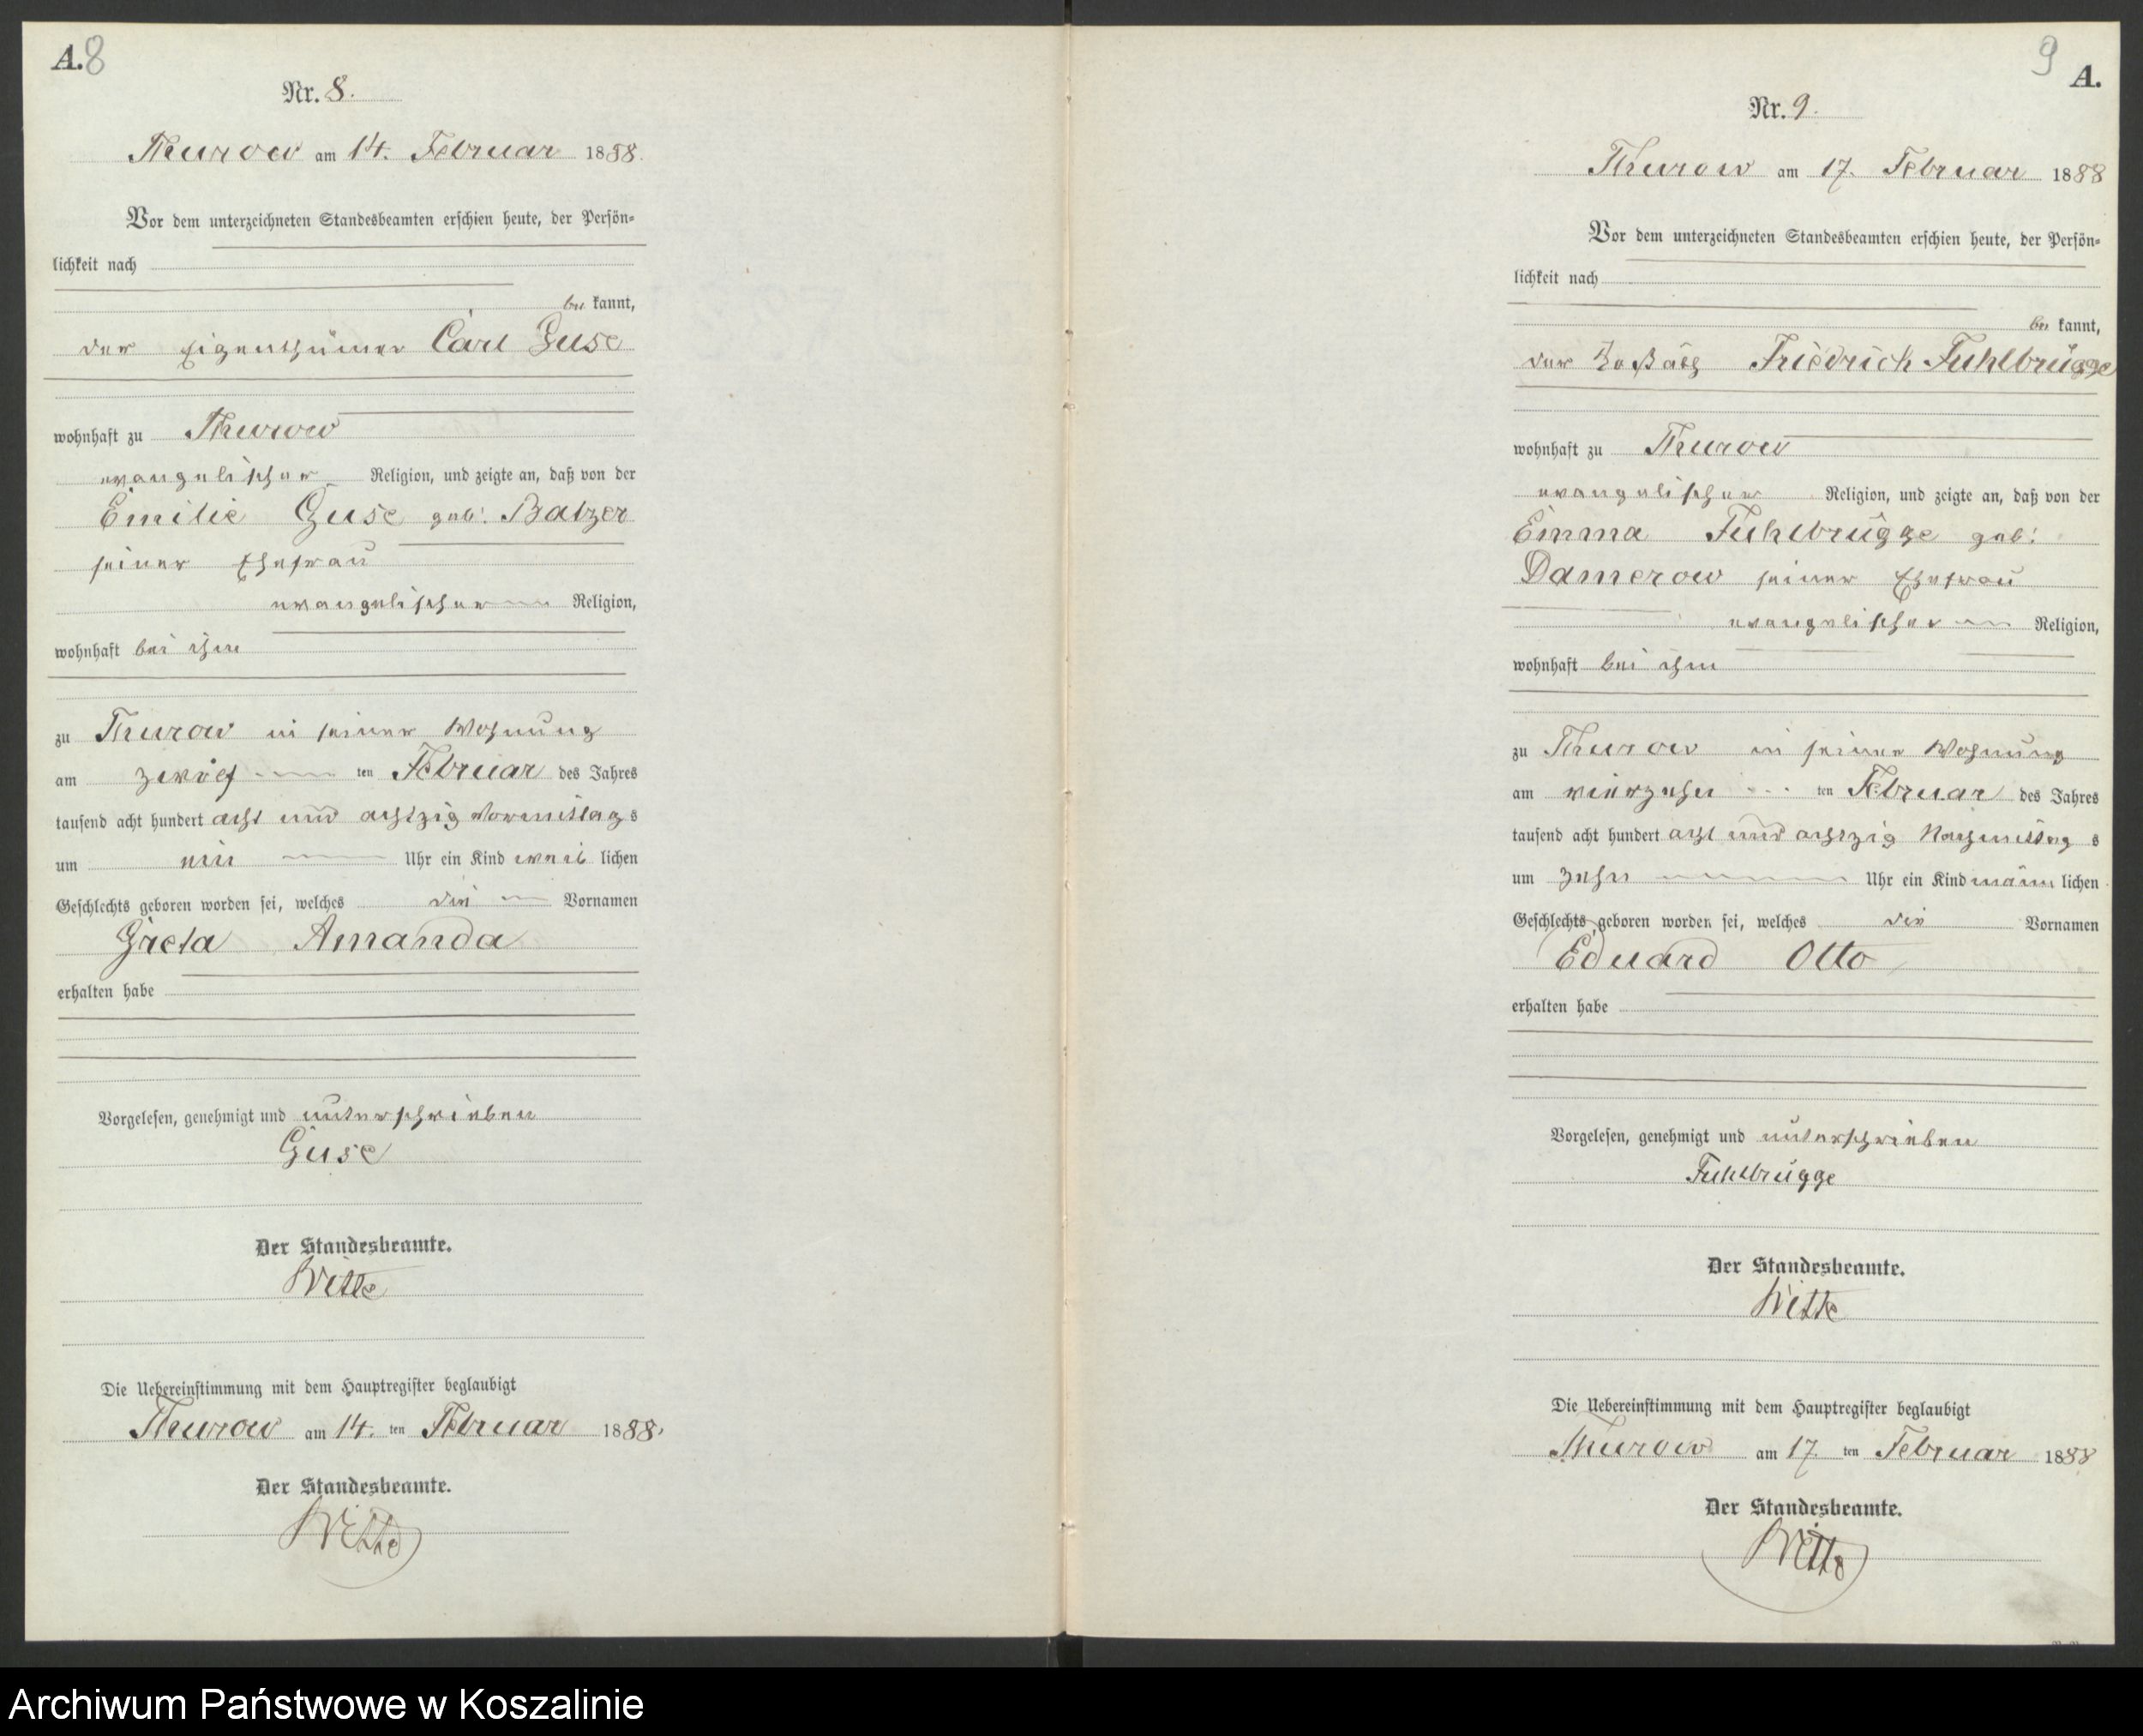 A. 8
Nr. 8.
Thurow am 14. Februar 1888.
Vor dem unterzeichneten Standesbeamten erschien heute, der Persön-
lichkeit nach
be kannt,
der Eigenthümer Carl Guse
wohnhaft zu Thurow
evangelischer Religion, und zeigte an, daß von der
Emilie Guse geb: Balzer
seiner Ehefrau
evangelischer Religion,
wohnhaft bei ihm
zu Thurow in seiner Wohnung
am zwölf ten Februar des Jahres
tausend acht hundert acht und achtzig Vormittags
um ein Uhr ein Kind weib lichen
Geschlechts geboren worden sei, welches die Vornamen
Greta Amanda
erhalten habe
Vorgelesen, genehmigt und unterschrieben
Guse
Der Standesbeamte.
Witte
Die Uebereinstimmung mit dem Hauptregister beglaubigt
Thurow am 14. ten Februar 1888.
Der Standesbeamte.
Witte
9 A.
Nr. 9.
Thurow am 17. Februar 1888
Vor dem unterzeichneten Standesbeamten erschien heute, der Persön-
lichkeit nach
be kannt,
der Koßäth Friedrich Fuhlbrügge
wohnhaft zu Thurow
evangelischer Religion, und zeigte an, daß von der
Emma Fuhlbrügge geb:
Damerow seiner Ehefrau
evangelischer Religion,
wohnhaft bei ihm
zu Thurow in seiner Wohnung
am vierzehn ten Februar des Jahres
tausend acht hundert acht und achtzig Nachmittag s
um zehn Uhr ein Kind männ lichen
Geschlechts geboren worden sei, welches die Vornamen
Eduard Otto
erhalten habe
Vorgelesen, genehmigt und unterschrieben
Fuhlbrügge
Der Standesbeamte.
Witte
Die Uebereinstimmung mit dem Hauptregister beglaubigt
Thurow am 17. ten Februar 1888
Der Standesbeamte.
Witte
Archiwum Państwowe w Koszalinie